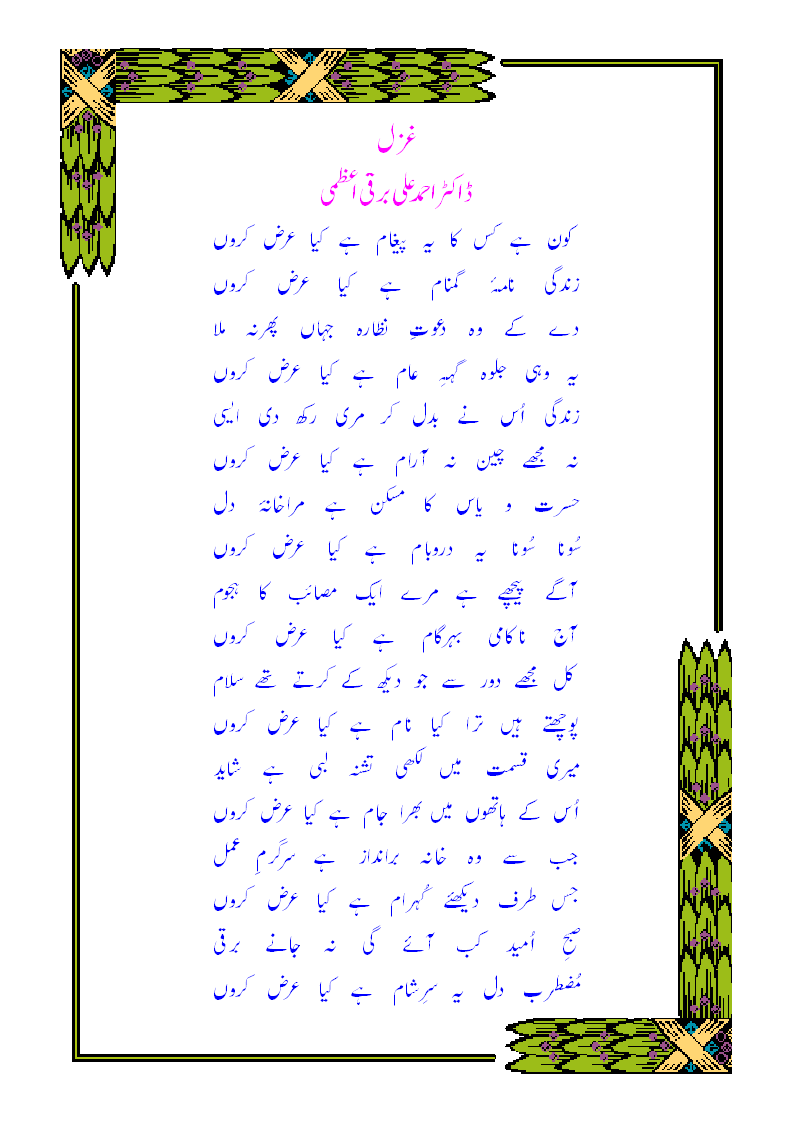 غزل
ڈاکٹر احمد علی برقی اعظمی
کون ہے کس کا یہ پیغام ہے کیا عرض کروں
زندگی نامۂ گمنام ہے کیا عرض کروں
دے کے وہ دعوتِ نظارہ جہاں پھر نہ ملا
یہ وہی جلوہ گہہِ عام ہے کیا عرض کروں
زندگی اُس نے بدل کر مری رکھ دی ایسی
نہ مجھے چین نہ آرام ہے کیا عرض کروں
حسرت و یاس کا مسکن ہے مرا خانۂ دل
سُونا سُونا یہ در و بام ہے کیا عرض کروں
آگے پیچھے ہے مرے ایک مصائب کا ہجوم
آج ناکامی بہر گام ہے کیا عرض کروں
کل مجھے دور سے جو دیکھ کے کرتے تھے سلام
پوچھتے ہیں ترا کیا نام ہے کیا عرض کروں
میری قسمت میں لکھی تشنہ لبی ہے شاید
اُس کے ہاتھوں میں بھرا جام ہے کیا عرض کروں
جب سے وہ خانہ برانداز ہے سرگرمِ عمل
جس طرف دیکھئے کُہرام ہے کیا عرض کروں
صبحِ اُمید کب آئے گی نہ جانے برقی
مُضطرب دل یہ سرِ شام ہے کیا عرض کروں